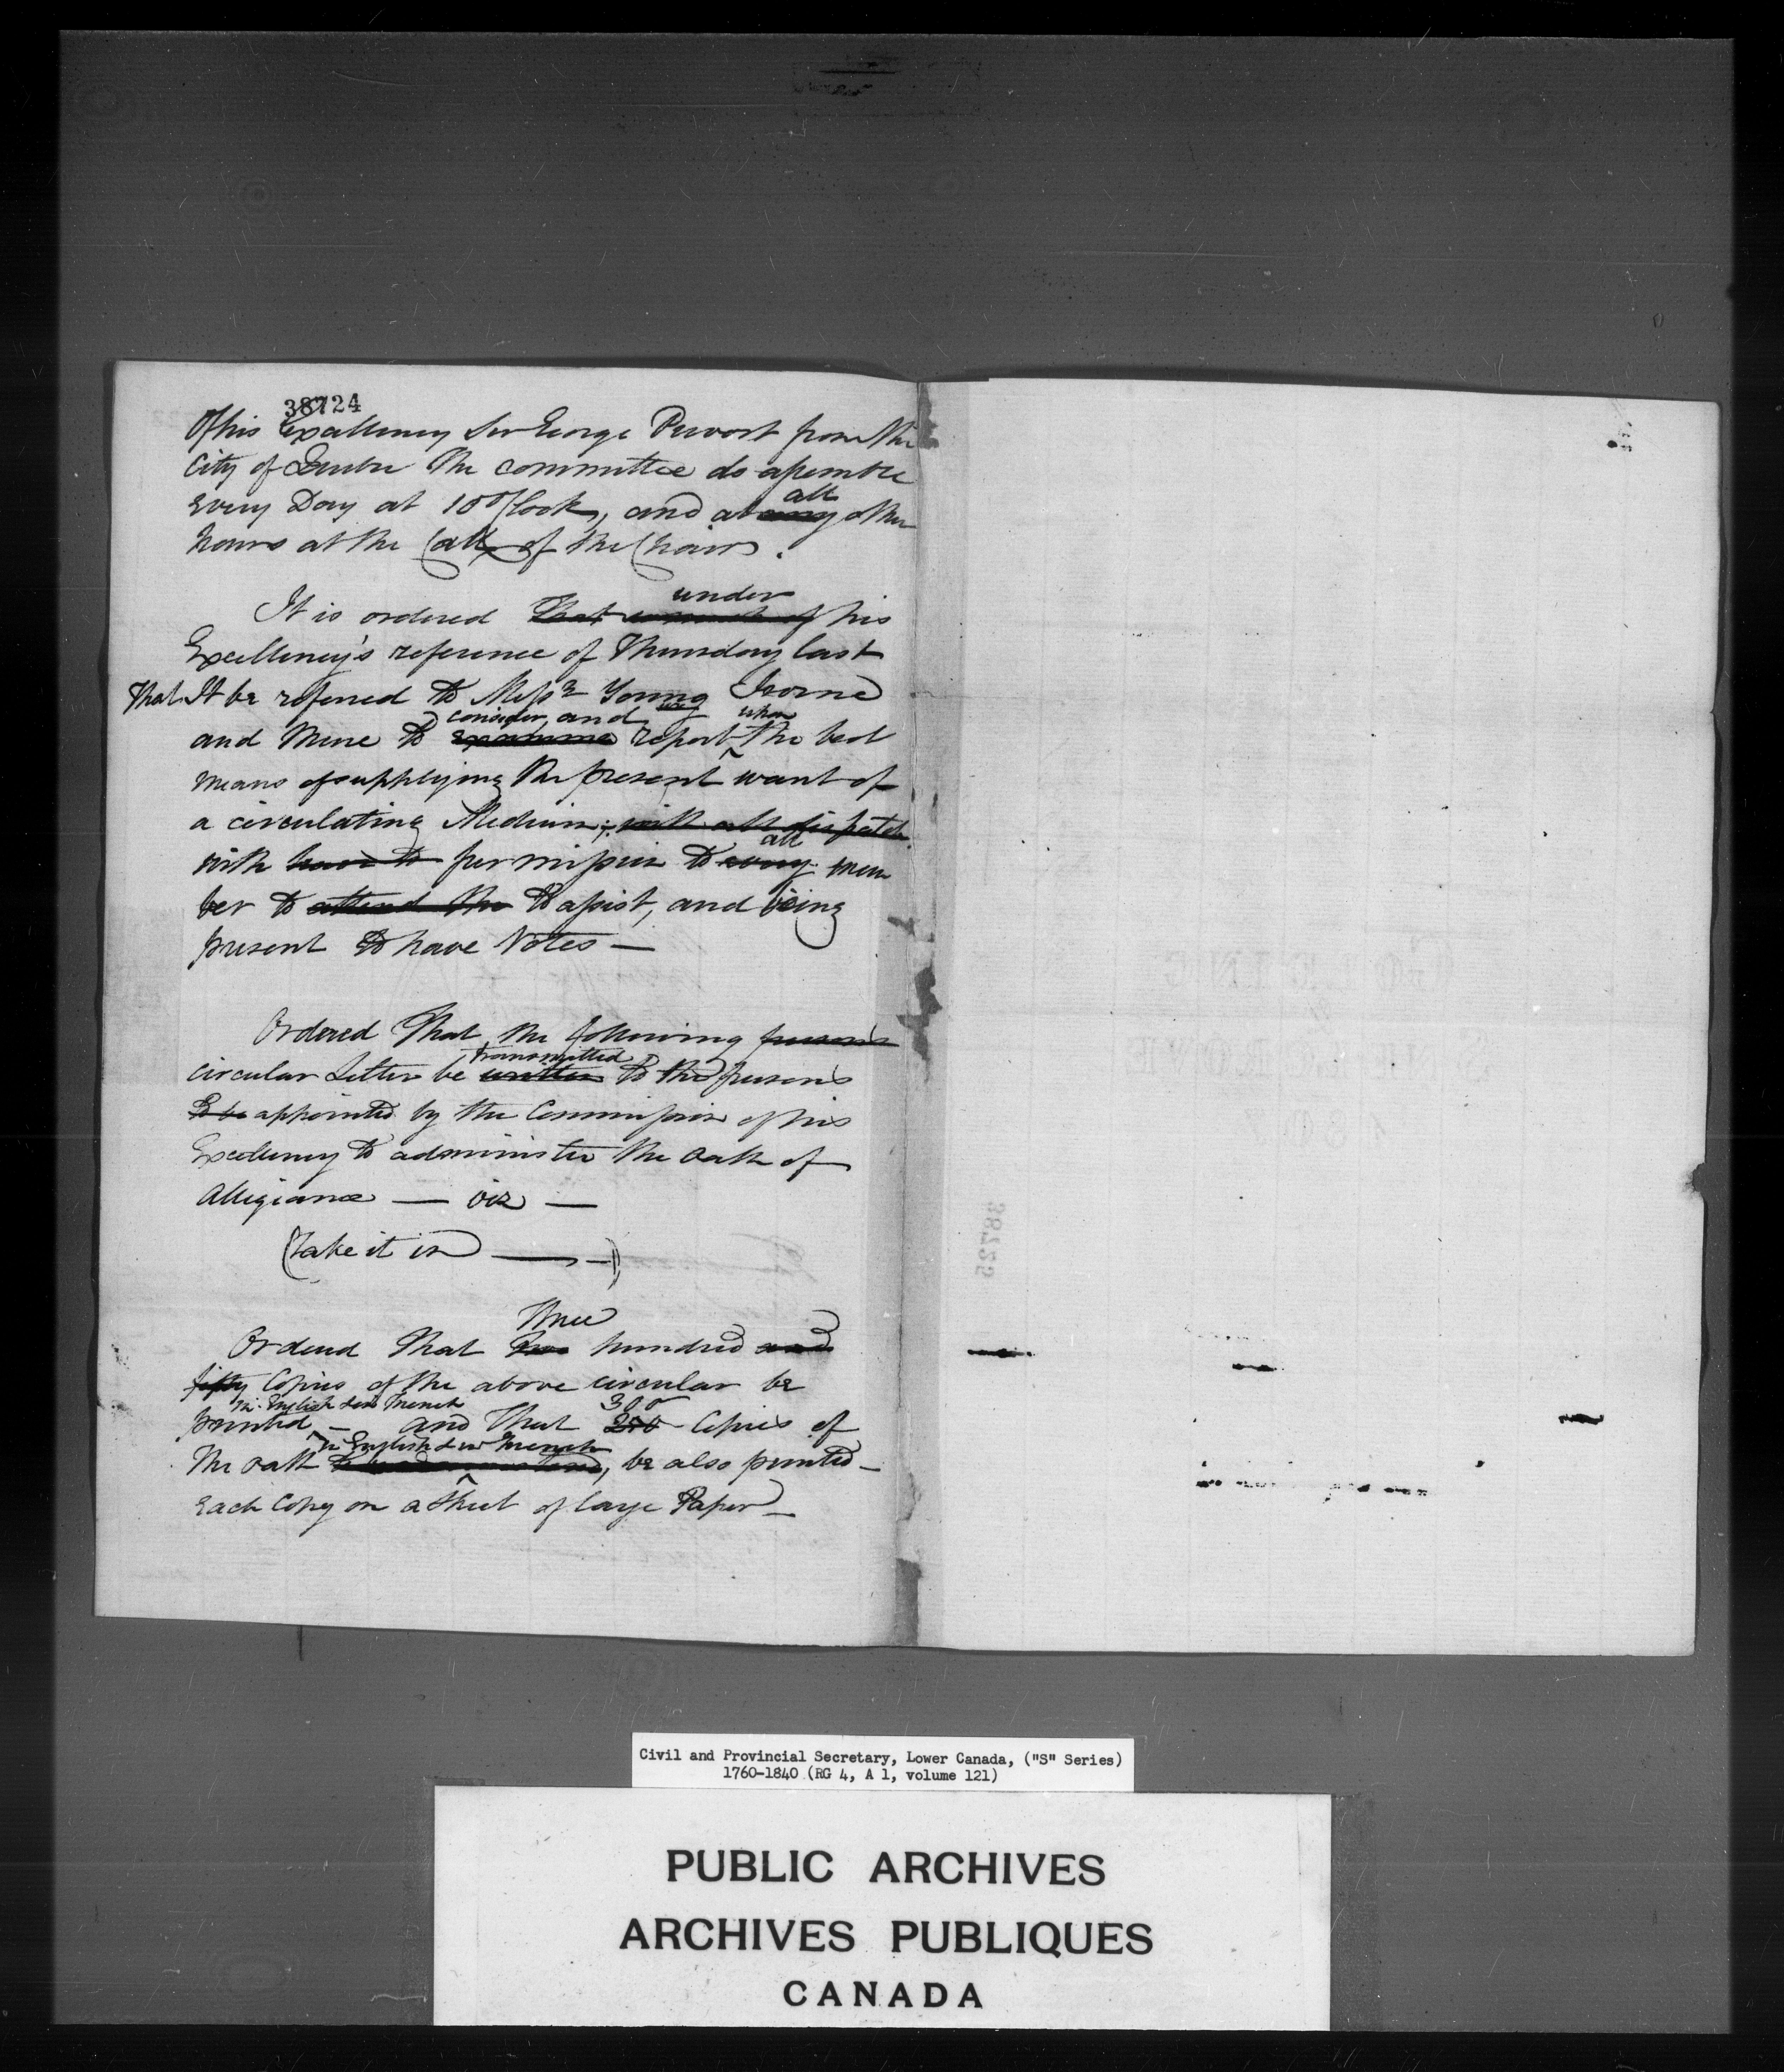 38724
Of his Excellency Sir George Prevost from the
City of Quebec the committee do assemble
every Day at 10 O'Clock, and at any all other
hours at the Call of the Chair.
It is ordered that under of his
Excellency's reference of Thursday last
That It be referred to Messrs Young Irvine
and Mure to examine consider, and report upon the best
means of supplying the present want of
a circulating Medium; with all dispatch
with leave to permission to every all mem
ber to attend the to assist, and being
present to have Votes —
Ordered That the following persons
circular Letter be written transmitted to the persons
to be appointed by the Commission of his
Excellency to administer the Oath of
Allegiance — viz —
(Take it in ———)
Ordered That two Three hundred and
fifty Copies of the above circular be
printed in English & in French — and That 250 300 Copies of
the oath in English & in French, be also printed —
each Copy on a sheet of large Paper —
38725
Civil and Provincial Secretary, Lower Canada, ("S" Series)
1760-1840 (RG 4, A 1, volume 121)
PUBLIC ARCHIVES
ARCHIVES PUBLIQUES
CANADA